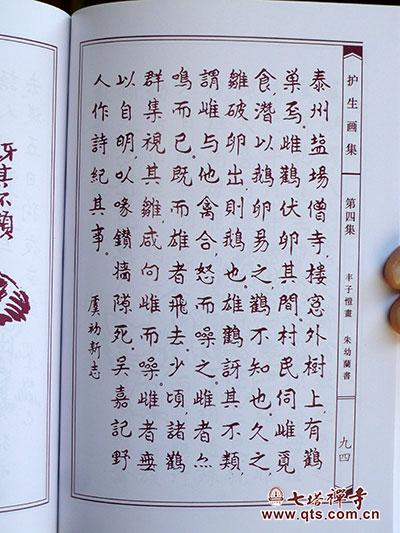 护生画集 第四集 丰子愷畫 朱幼蘭書 九四
泰州盐場僧寺,樓窓外樹上,有鸛
巢焉。雌鸛伏卵其間,村民伺雌覓
食,潛以鵝卵易之,鸛不知也。久之,
雛破卵出,則鵝也。雄鸛訝其不類,
謂雌与他禽合,怒而噪之。雌者亦
鳴而已。既而雄者飛去。少頃,諸鸛
群集視其雛,咸向雌而噪。雌者無
以自明,以喙鑽墙隙死。吴嘉記野
人作詩紀其事。
虞初新志
其不類
七塔禪寺
www.qts.com.cn